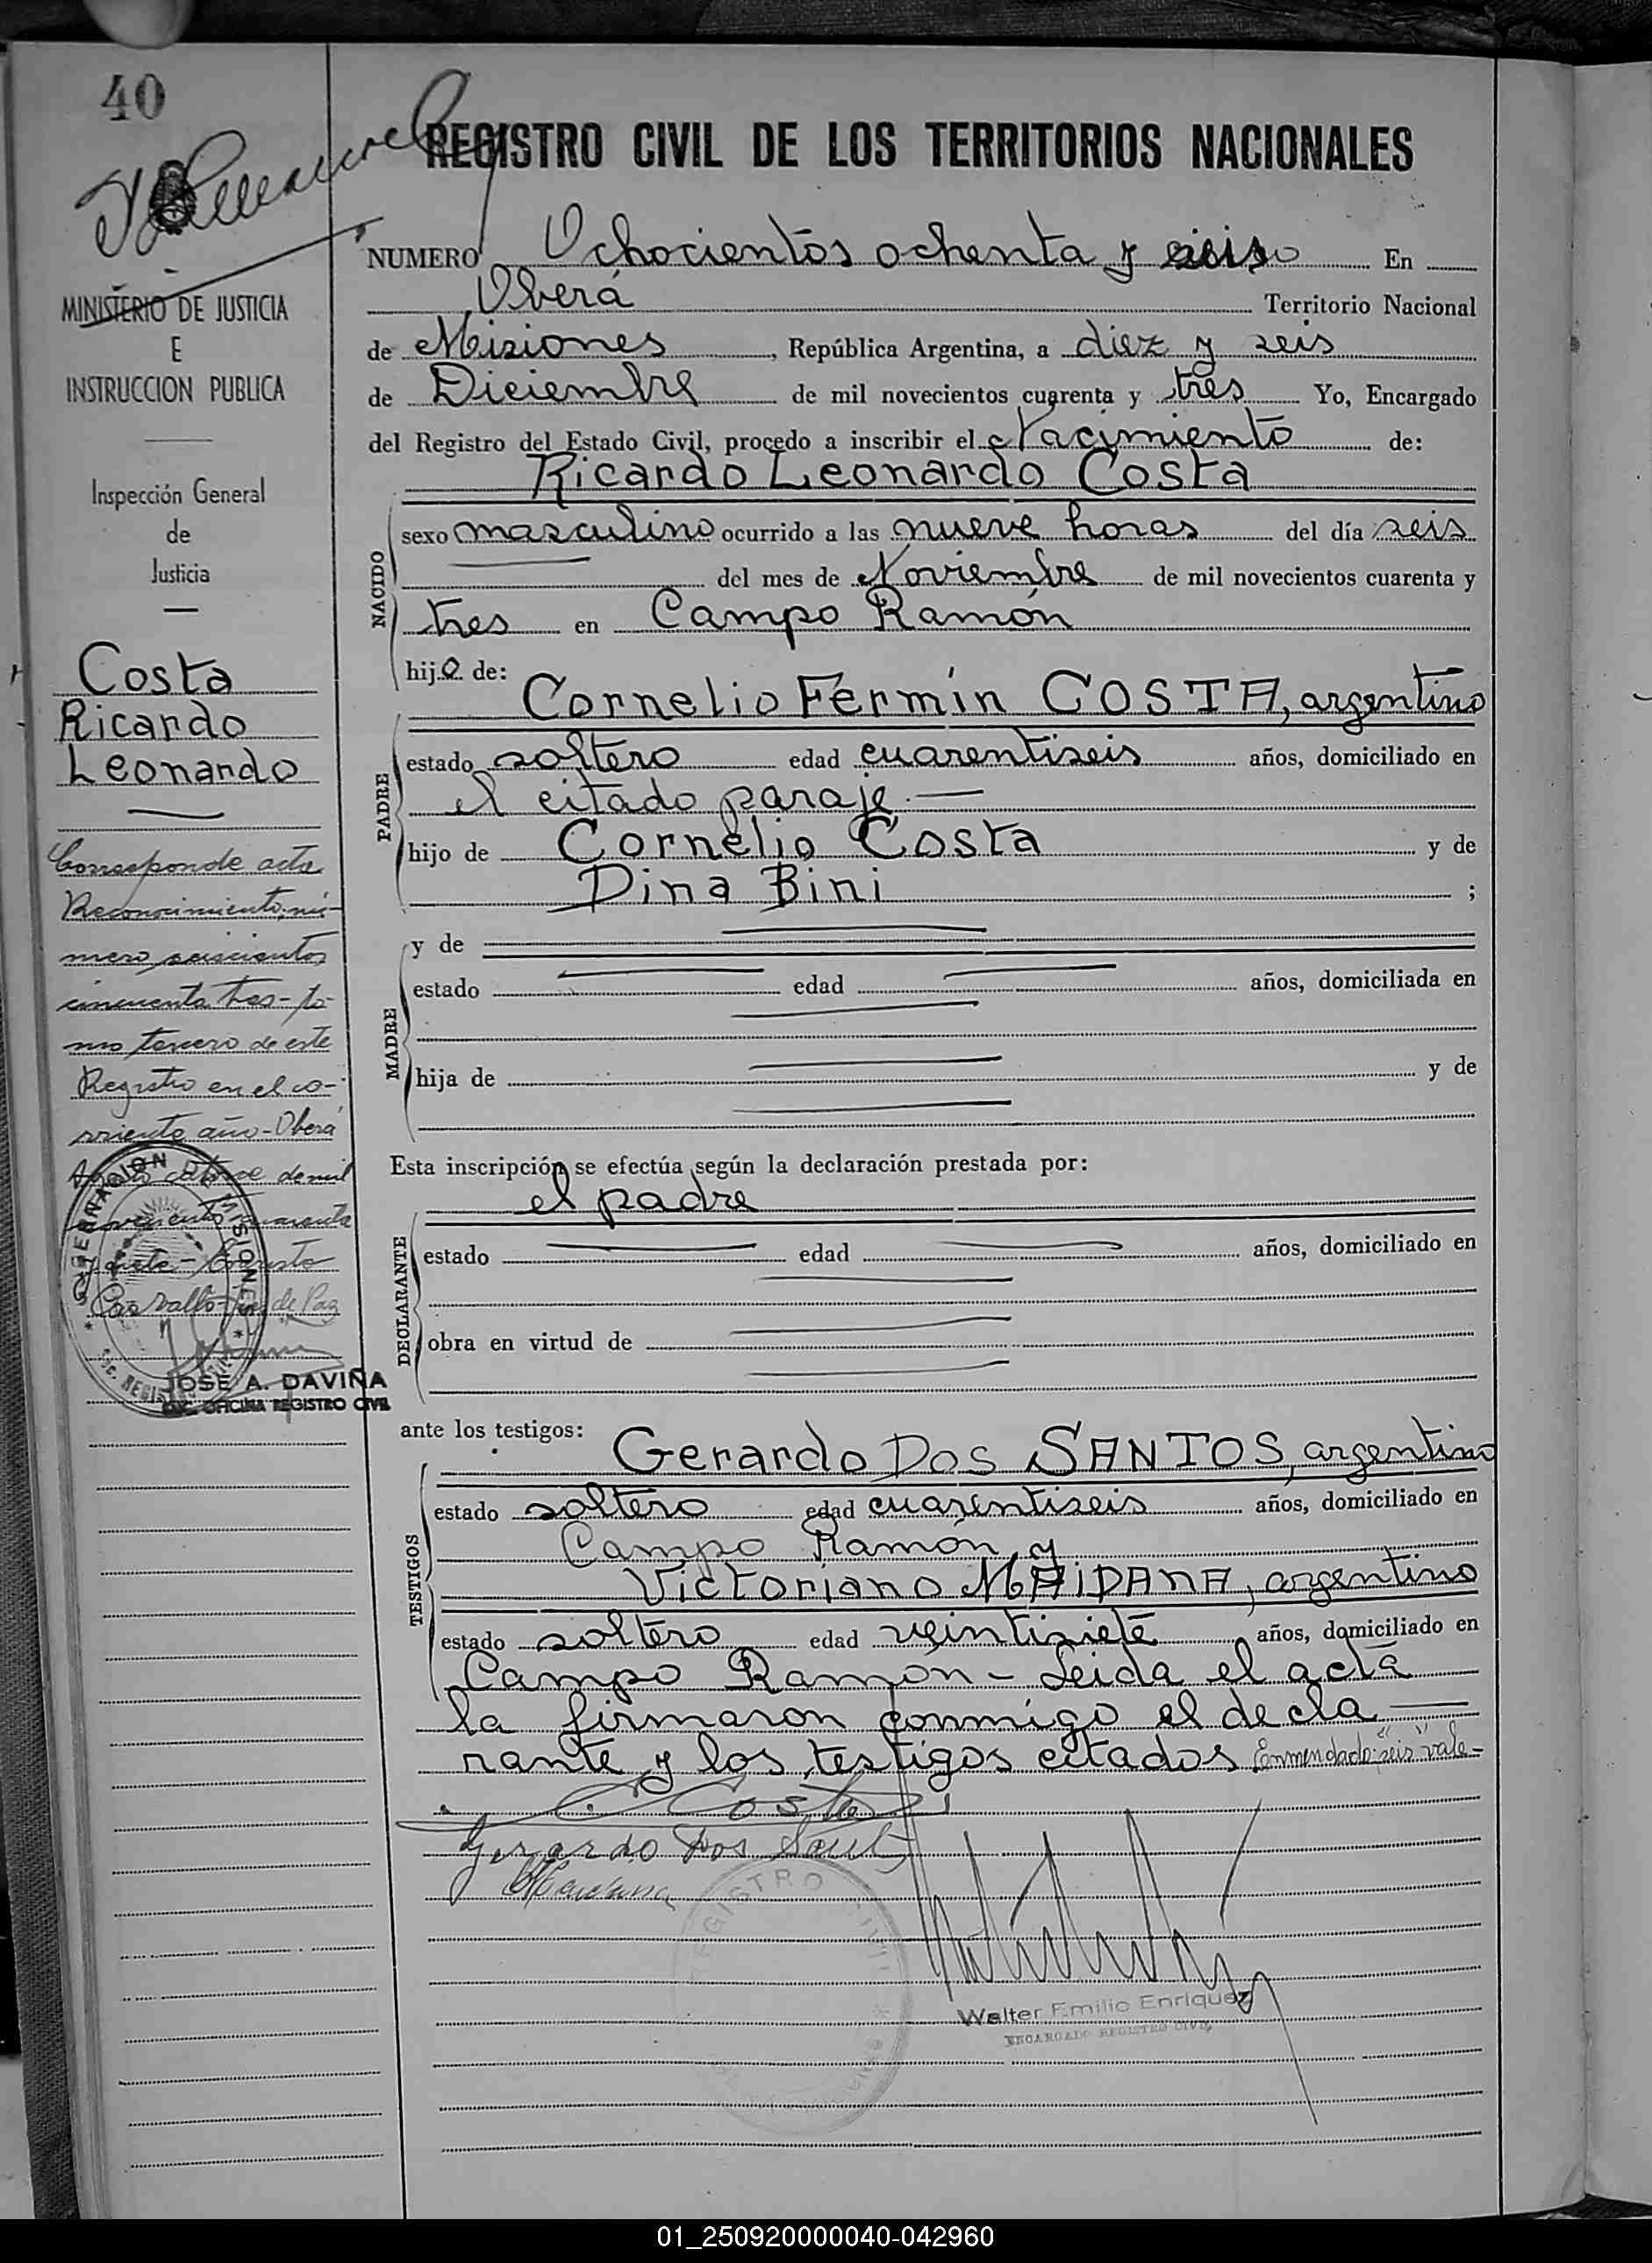 40
REGISTRO CIVIL DE LOS TERRITORIOS NACIONALES
MINISTERIO DE JUSTICIA
E
INSTRUCCION PUBLICA
Inspección General
de
Justicia
Costa
Ricardo
Leonardo
Corresponde acta
Reconocimiento nú-
mero seiscientos
cincuenta tres - to-
mo tercero de este
Registro en el co-
rriente año - Oberá
Agosto catorce de mil
novecientos cuarenta
y siete -
de Paz
GOBERNACION MISIONES
JOSE A. DAVIÑA
ENC. OFICINA REGISTRO CIVIL
NUMERO Ochocientos ochenta y seis En
Oberá Territorio Nacional
de Misiones, República Argentina, a diez y seis
de Diciembre de mil novecientos cuarenta y tres Yo, Encargado
del Registro del Estado Civil, procedo a inscribir el Nacimiento de:
Ricardo Leonardo Costa
NACIDO
sexo masculino ocurrido a las nueve horas del día seis
del mes de Noviembre de mil novecientos cuarenta y
tres en Campo Ramón
hijo de:
Cornelio Fermín COSTA, argentino
PADRE
estado soltero edad cuarentiseis años, domiciliado en
el citado paraje.—
hijo de Cornelio Costa y de
Dina Bini ;
MADRE
y de
estado edad años, domiciliada en
hija de y de
Esta inscripción se efectúa según la declaración prestada por:
el padre
DECLARANTE
estado edad años, domiciliado en
obra en virtud de
ante los testigos:
Gerardo Dos SANTOS, argentino
TESTIGOS
estado soltero edad cuarentiseis años, domiciliado en
Campo Ramón y
Victoriano MAIDANA, argentino
estado soltero edad veintisiete años, domiciliado en
Campo Ramón - Leida el acta
la firmaron conmigo el decla—
rante y los testigos citados Enmendado: "seis" vale-
C Costa
Gerardo Dos Santos
Maidana
REGISTRO CIVIL
Walter Emilio Enriquez
ENCARGADO REGISTRO CIVIL
01_250920000040-042960